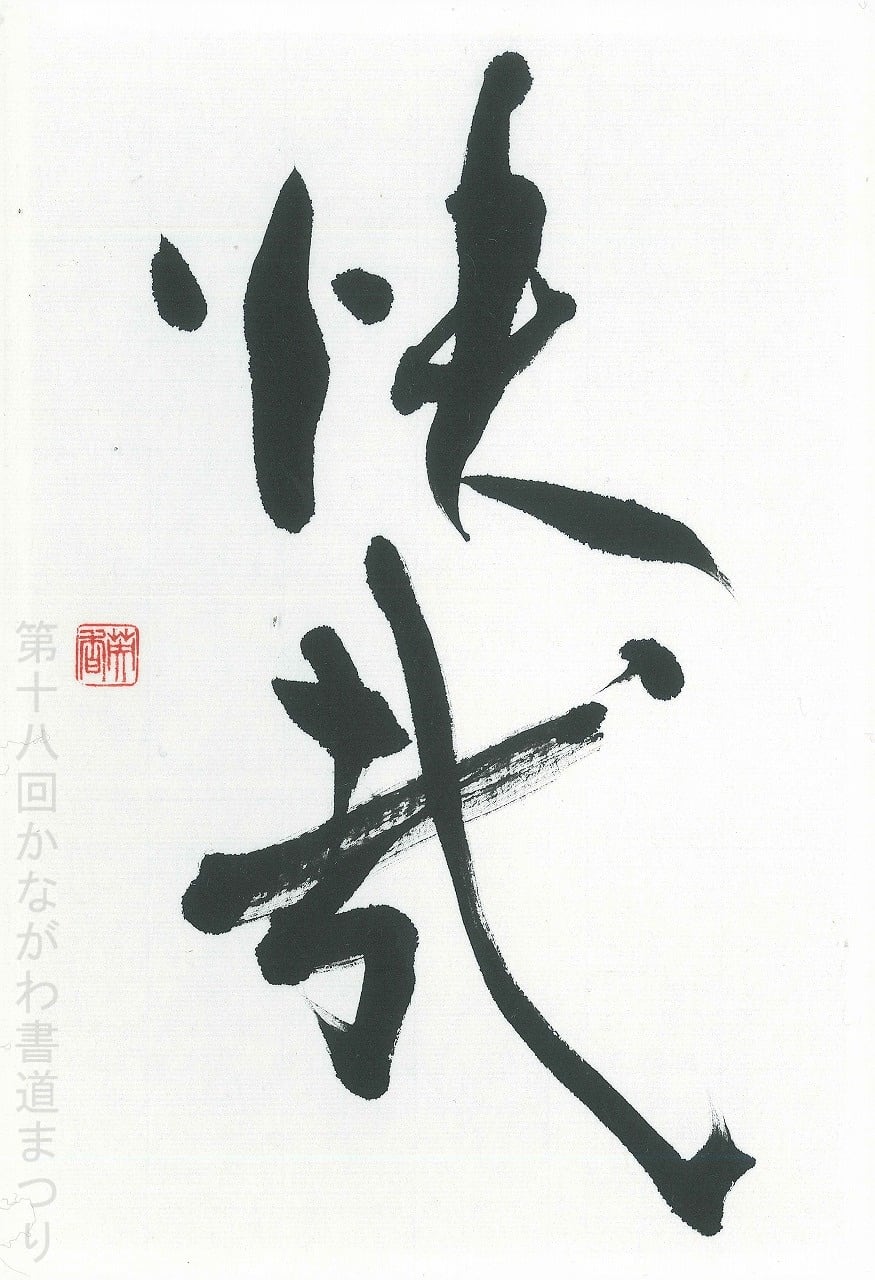 快哉
第十八回かながわ書道まつり